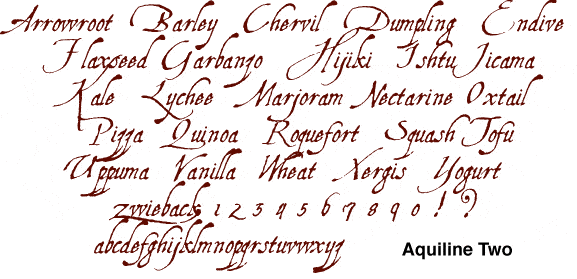 Arrowroot Barley Chervil Dumpling Endive
Flaxseed Garbanzo Hijiki Ishtu Jicama
Kale Lychee Marjoram Nectarine Oxtail
Pizza Quinoa Roquefort Squash Tofu
Uppuma Vanilla Wheat Xergis Yogurt
zwieback 1 2 3 4 5 6 7 8 9 0 ! ?
abcdefghijklmnopqrstuvwxyz
Aquiline Two